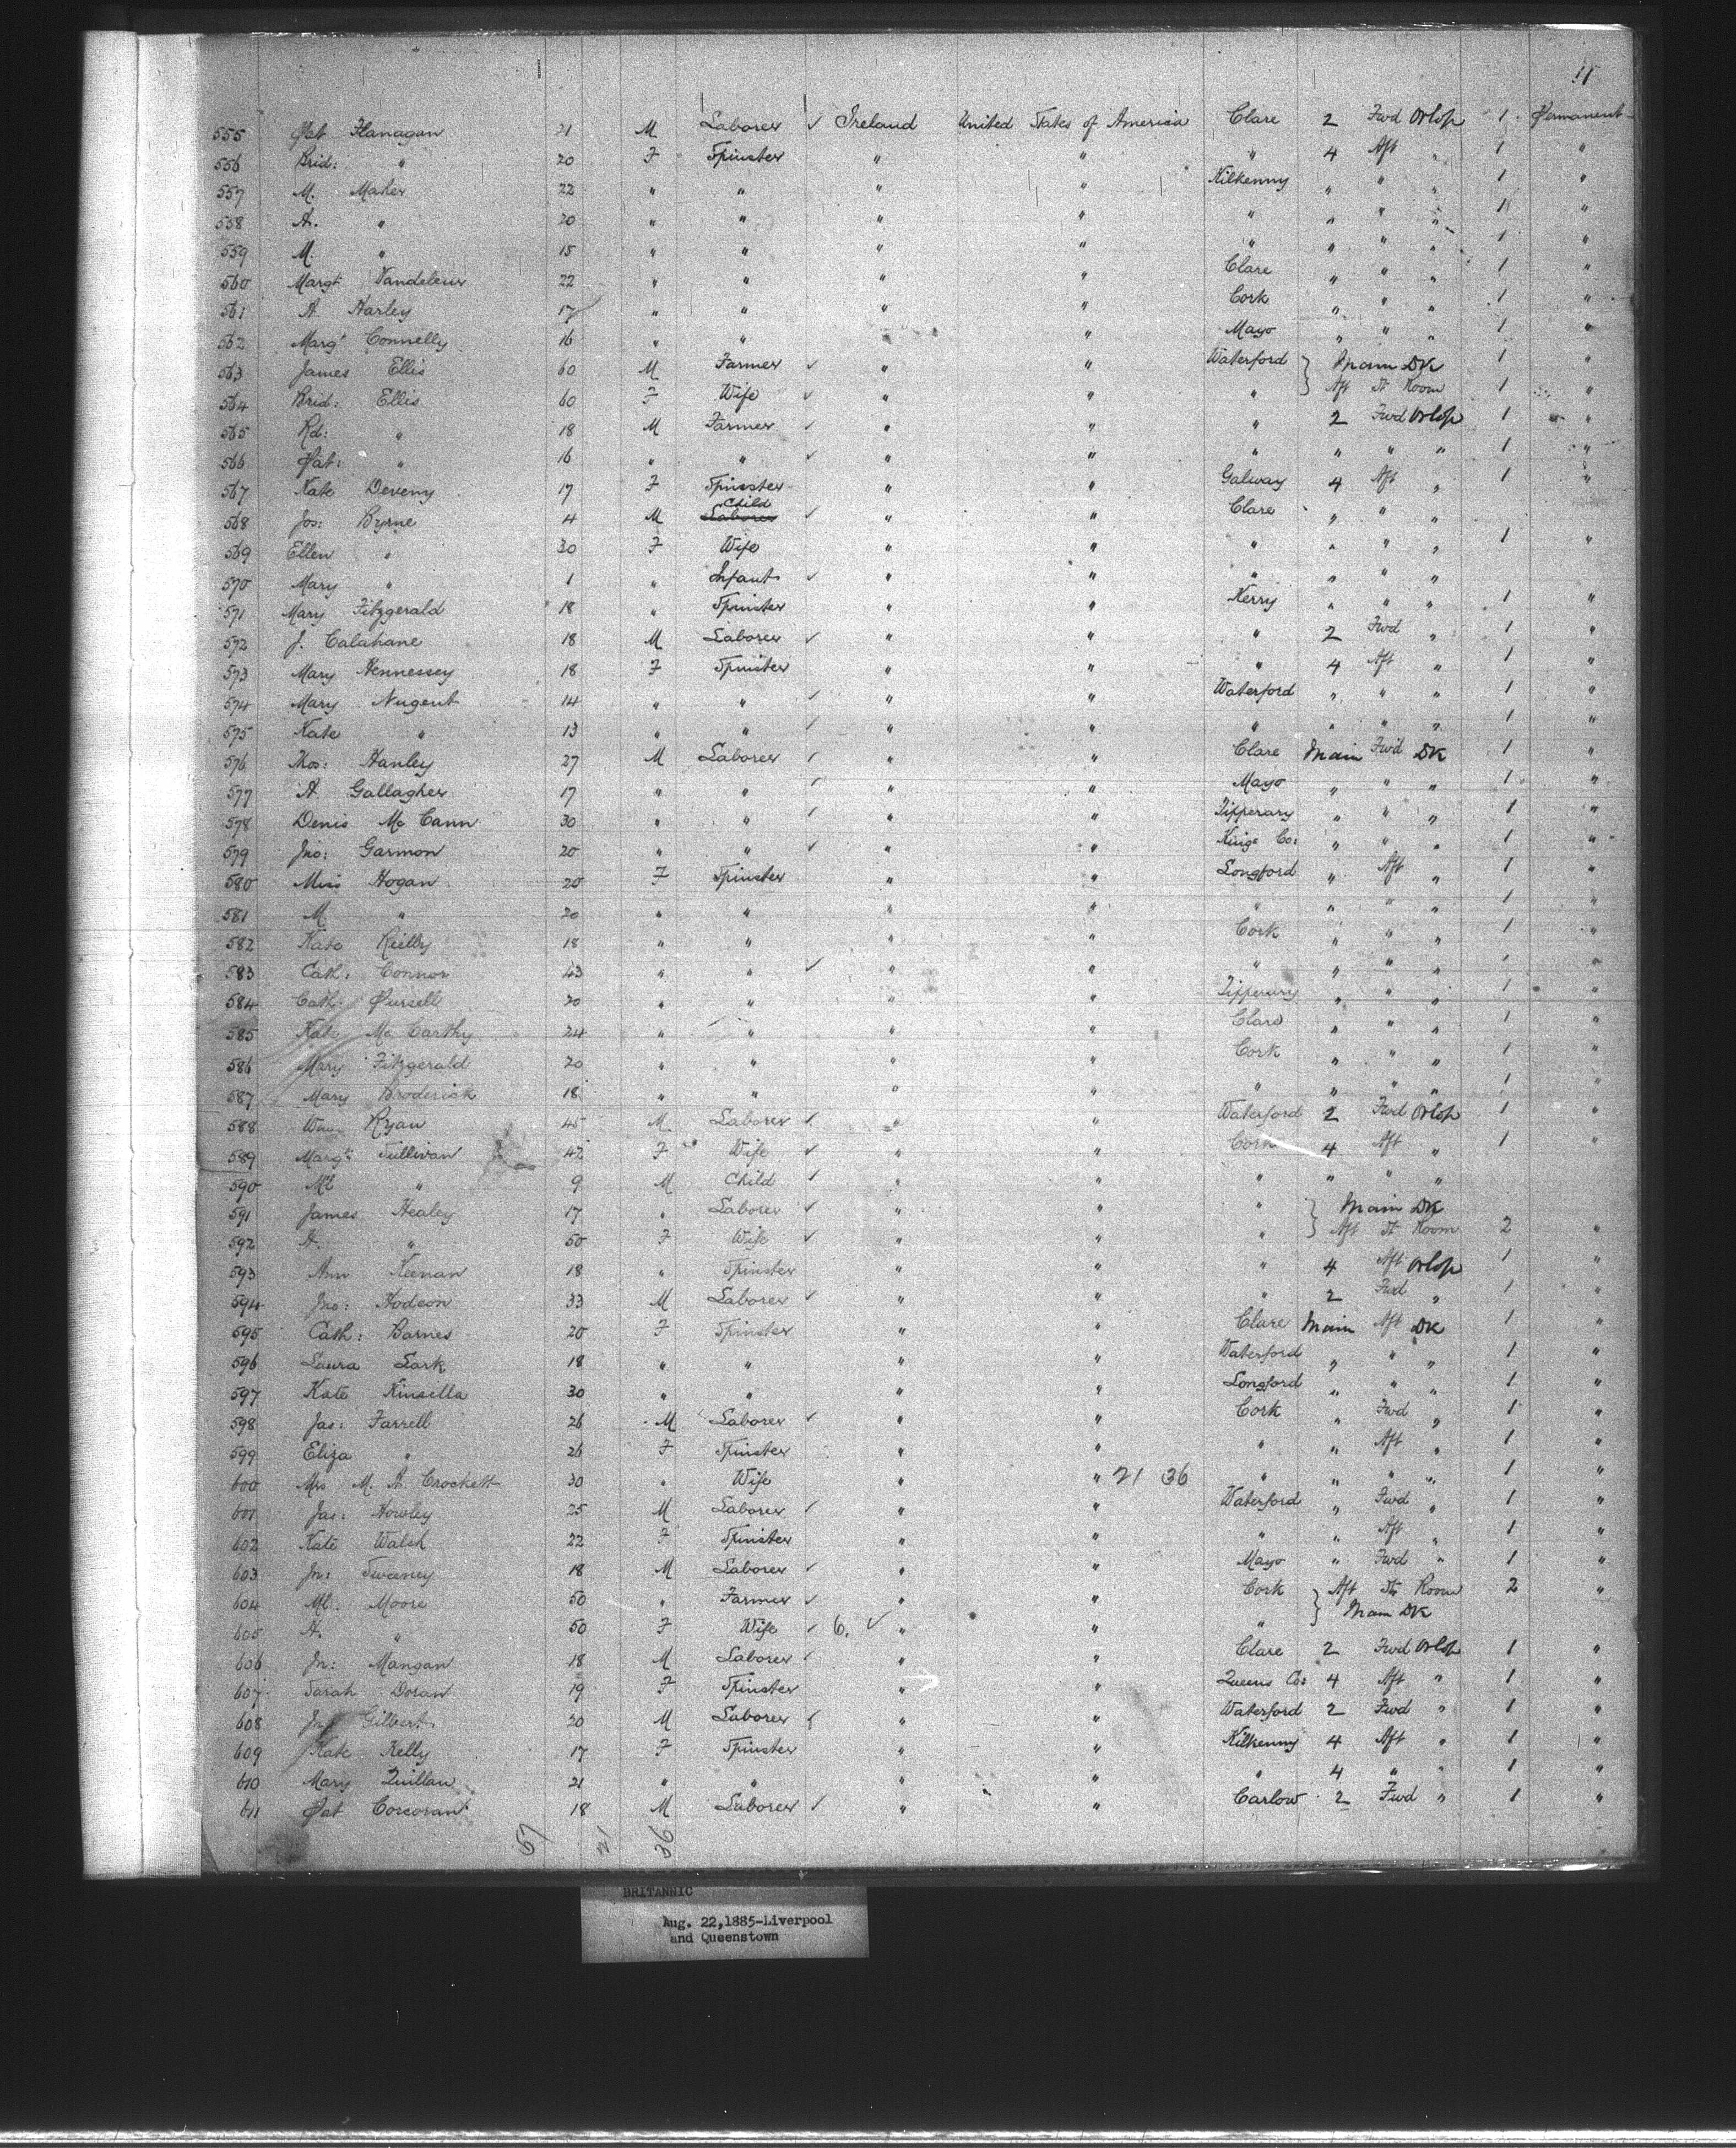 11
555 Pat Flanagan 21 M Laborer ✓ Ireland United States of America Clare 2 Fwd Orlop 1 Permanent
556 Brid: " 20 F Spinster " " " 4 Aft " 1 "
557 M. Maher 22 " " " " Kilkenny " " " 1 "
558 A. " 20 " " " " " " " " 1 "
559 M. " 15 " " " " " " " " 1 "
560 Margt Vandeleur 22 " " " " Clare " " " 1 "
561 A Harley 17 " " " " Cork " " " 1 "
562 Margt Connelly 16 " " " " Mayo " " " 1 "
563 James Ellis 60 M Farmer ✓ " " Waterford } Main DK 1 "
564 Brid: Ellis 60 F Wife ✓ " " " } Aft St Room 1 "
565 Rd: " 18 M Farmer ✓ " " " 2 Fwd Orlop 1 "
566 Pat: " 16 " " ✓ " " " " " " 1 "
567 Kate Deveny 17 F Spinster " " Galway 4 Aft " 1 "
568 Jos: Byrne 4 M Laborer Child ✓ " " Clare " " "
569 Ellen " 30 F Wife " " " " " " 1 "
570 Mary " 1 " Infant ✓ " " " " " "
571 Mary Fitzgerald 18 " Spinster " " Kerry " " " 1 "
572 J. Calahane 18 M Laborer ✓ " " " 2 Fwd " 1 "
573 Mary Hennessey 18 F Spinster " " " 4 Aft " 1 "
574 Mary Nugent 14 " " ✓ " " Waterford " " " 1 "
575 Kate " 13 " " ✓ " " " " " " 1 "
576 Thos: Hanley 27 M Laborer ✓ " " Clare Main Fwd DK 1 "
577 A Gallagher 17 " " ✓ " " Mayo " " " 1 "
578 Denis Mc Cann 30 " " ✓ " " Tipperary " " " 1 "
579 Jno: Garmon 20 " " ✓ " " Kings Co: " " " 1 "
580 Miss Hogan 20 F Spinster " " Longford " Aft " 1 "
581 M " 20 " " " " " " " " 1 "
582 Kate Reilly 18 " " " " Cork " " " 1 "
583 Cath: Connor 43 " " ✓ " " " " " " 1 "
584 Cath: Pursell 20 " " " " Tipperary " " " 1 "
585 Kate Mc Carthy 24 " " " " Clare " " " 1 "
586 Mary Fitzgerald 20 " " " " Cork " " " 1 "
587 Mary Broderick 18 " " " " " " " " 1 "
588 Wm Ryan 45 M Laborer ✓ " " Waterford 2 Fwd Orlop 1 "
589 Margt: Sullivan 42 F Wife ✓ " " Cork 4 Aft " 1 "
590 Ml " 9 M Child ✓ " " " " " "
591 James Healey 17 " Laborer ✓ " " " } Main DK
592 A. " 50 F Wife ✓ " " " } Aft St Room 2 "
593 Ann Keenan 18 " Spinster " " " 4 Aft Orlop 1 "
594 Jno: Hodson 33 M Laborer ✓ " " " 2 Fwd " 1 "
595 Cath: Barnes 20 F Spinster " " Clare Main Aft DK 1 "
596 Laura Lark 18 " " " " Waterford " " " 1 "
597 Kate Kinsella 30 " " " " Longford " " " 1 "
598 Jas: Farrell 26 M Laborer ✓ " " Cork " Fwd " 1 "
599 Eliza " 26 F Spinster " " " " Aft " 1 "
600 Mrs M. A. Crockett 30 " Wife " " 21 36 " " " " 1 "
601 Jas: Howley 25 M Laborer ✓ " " Waterford " Fwd " 1 "
602 Kate Walsh 22 F Spinster " " " " Aft " 1 "
603 Jn: Sweeney 18 M Laborer ✓ " " Mayo " Fwd " 1 "
604 Ml. Moore 50 " Farmer ✓ " " Cork } Aft St Room 2 "
605 A. " 50 F Wife ✓ 6. ✓ " " " } Main DK
606 Jn: Mangan 18 M Laborer ✓ " " Clare 2 Fwd Orlop 1 "
607 Sarah Doran 19 F Spinster " " Queens Co: 4 Aft " 1 "
608 Jno Gilbert 20 M Laborer ✓ " " Waterford 2 Fwd " 1 "
609 Kate Kelly 17 F Spinster " " Kilkenny 4 Aft " 1 "
610 Mary Quillan 21 " " " " " 4 " " 1 "
611 Pat Corcoran 18 M Laborer ✓ " " Carlow 2 Fwd " 1 "
57 21 36
BRITANNIC
Aug. 22,1885-Liverpool
and Queenstown